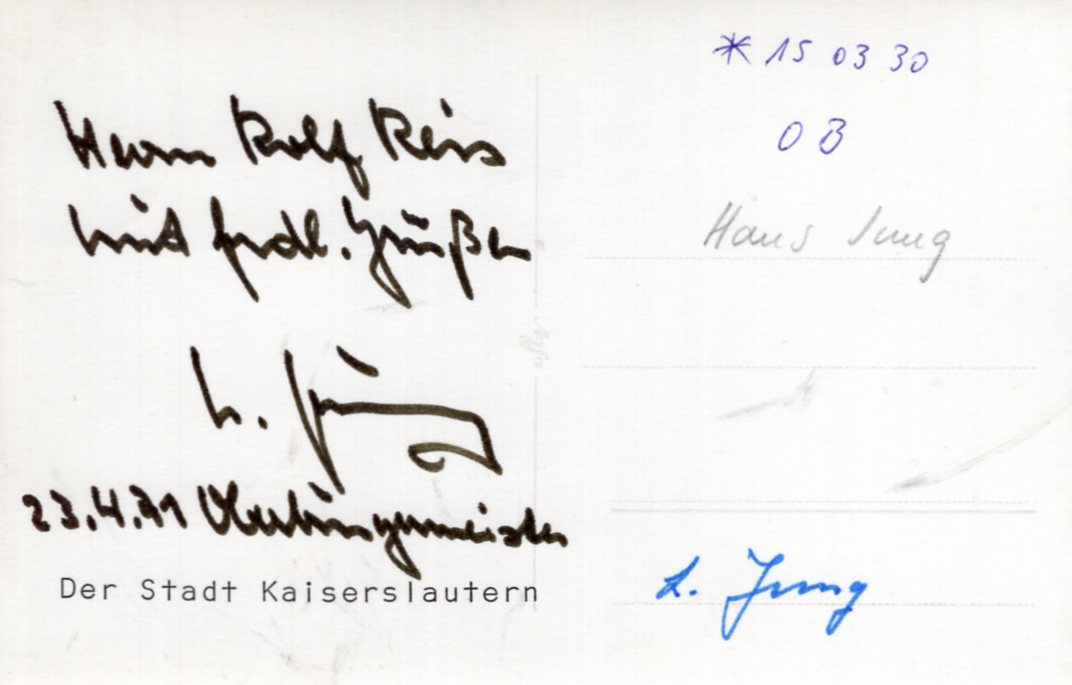 Herrn Rolf Reis
mit frdl. Grüßen
H. Jung
23.4.91 Oberbürgermeister
Der Stadt Kaiserslautern
* 15 03 30
OB
Hans Jung
H. Jung